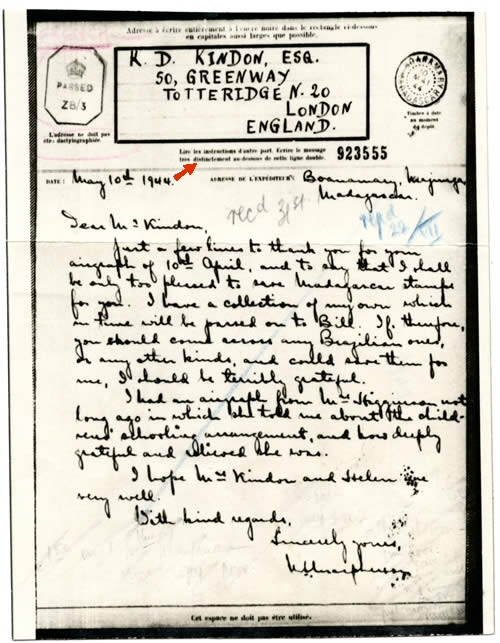 Adresse à écrire entièrement à l'encre noire dans le rectangle ci-dessous
en capitales aussi larges que possible.
PASSED
ZB/3
K. D. KINDON, ESQ.
50, GREENWAY
TOTTERIDGE N. 20
LONDON
ENGLAND.
BOANAMARY
MADAGASCAR
L'adresse ne doit pas
être dactylographiée.
Timbre à date
au moment
du dépôt.
Lire les instructions d'autre part. Ecrire le message
très distinctement au-dessous de cette ligne double.
923555
DATE : May 10th 1944.
ADRESSE DE L'EXPÉDITEUR : Boanamary, Majunga,
Madagascar.
recd 31st
Dear Mr Kindon,
Just a few lines to thank you for your
airgraph of 10th April, and to say that I shall
be only too pleased to save Madagascar stamps
for you. I have a collection of my own which
in time will be passed on to Bill. If, therefore,
you should come across any Brazilian ones,
or any other kinds, and could save them for
me, I should be terribly grateful.
I had an airgraph from Mrs Higginson not
long ago in which she told me about the child-
rens' schooling arrangement, and how deeply
grateful and relieved she was.
I hope Mrs Kindon and Helen are
very well.
With kind regards,
Sincerely yours,
Cet espace ne doit pas être utilisé.